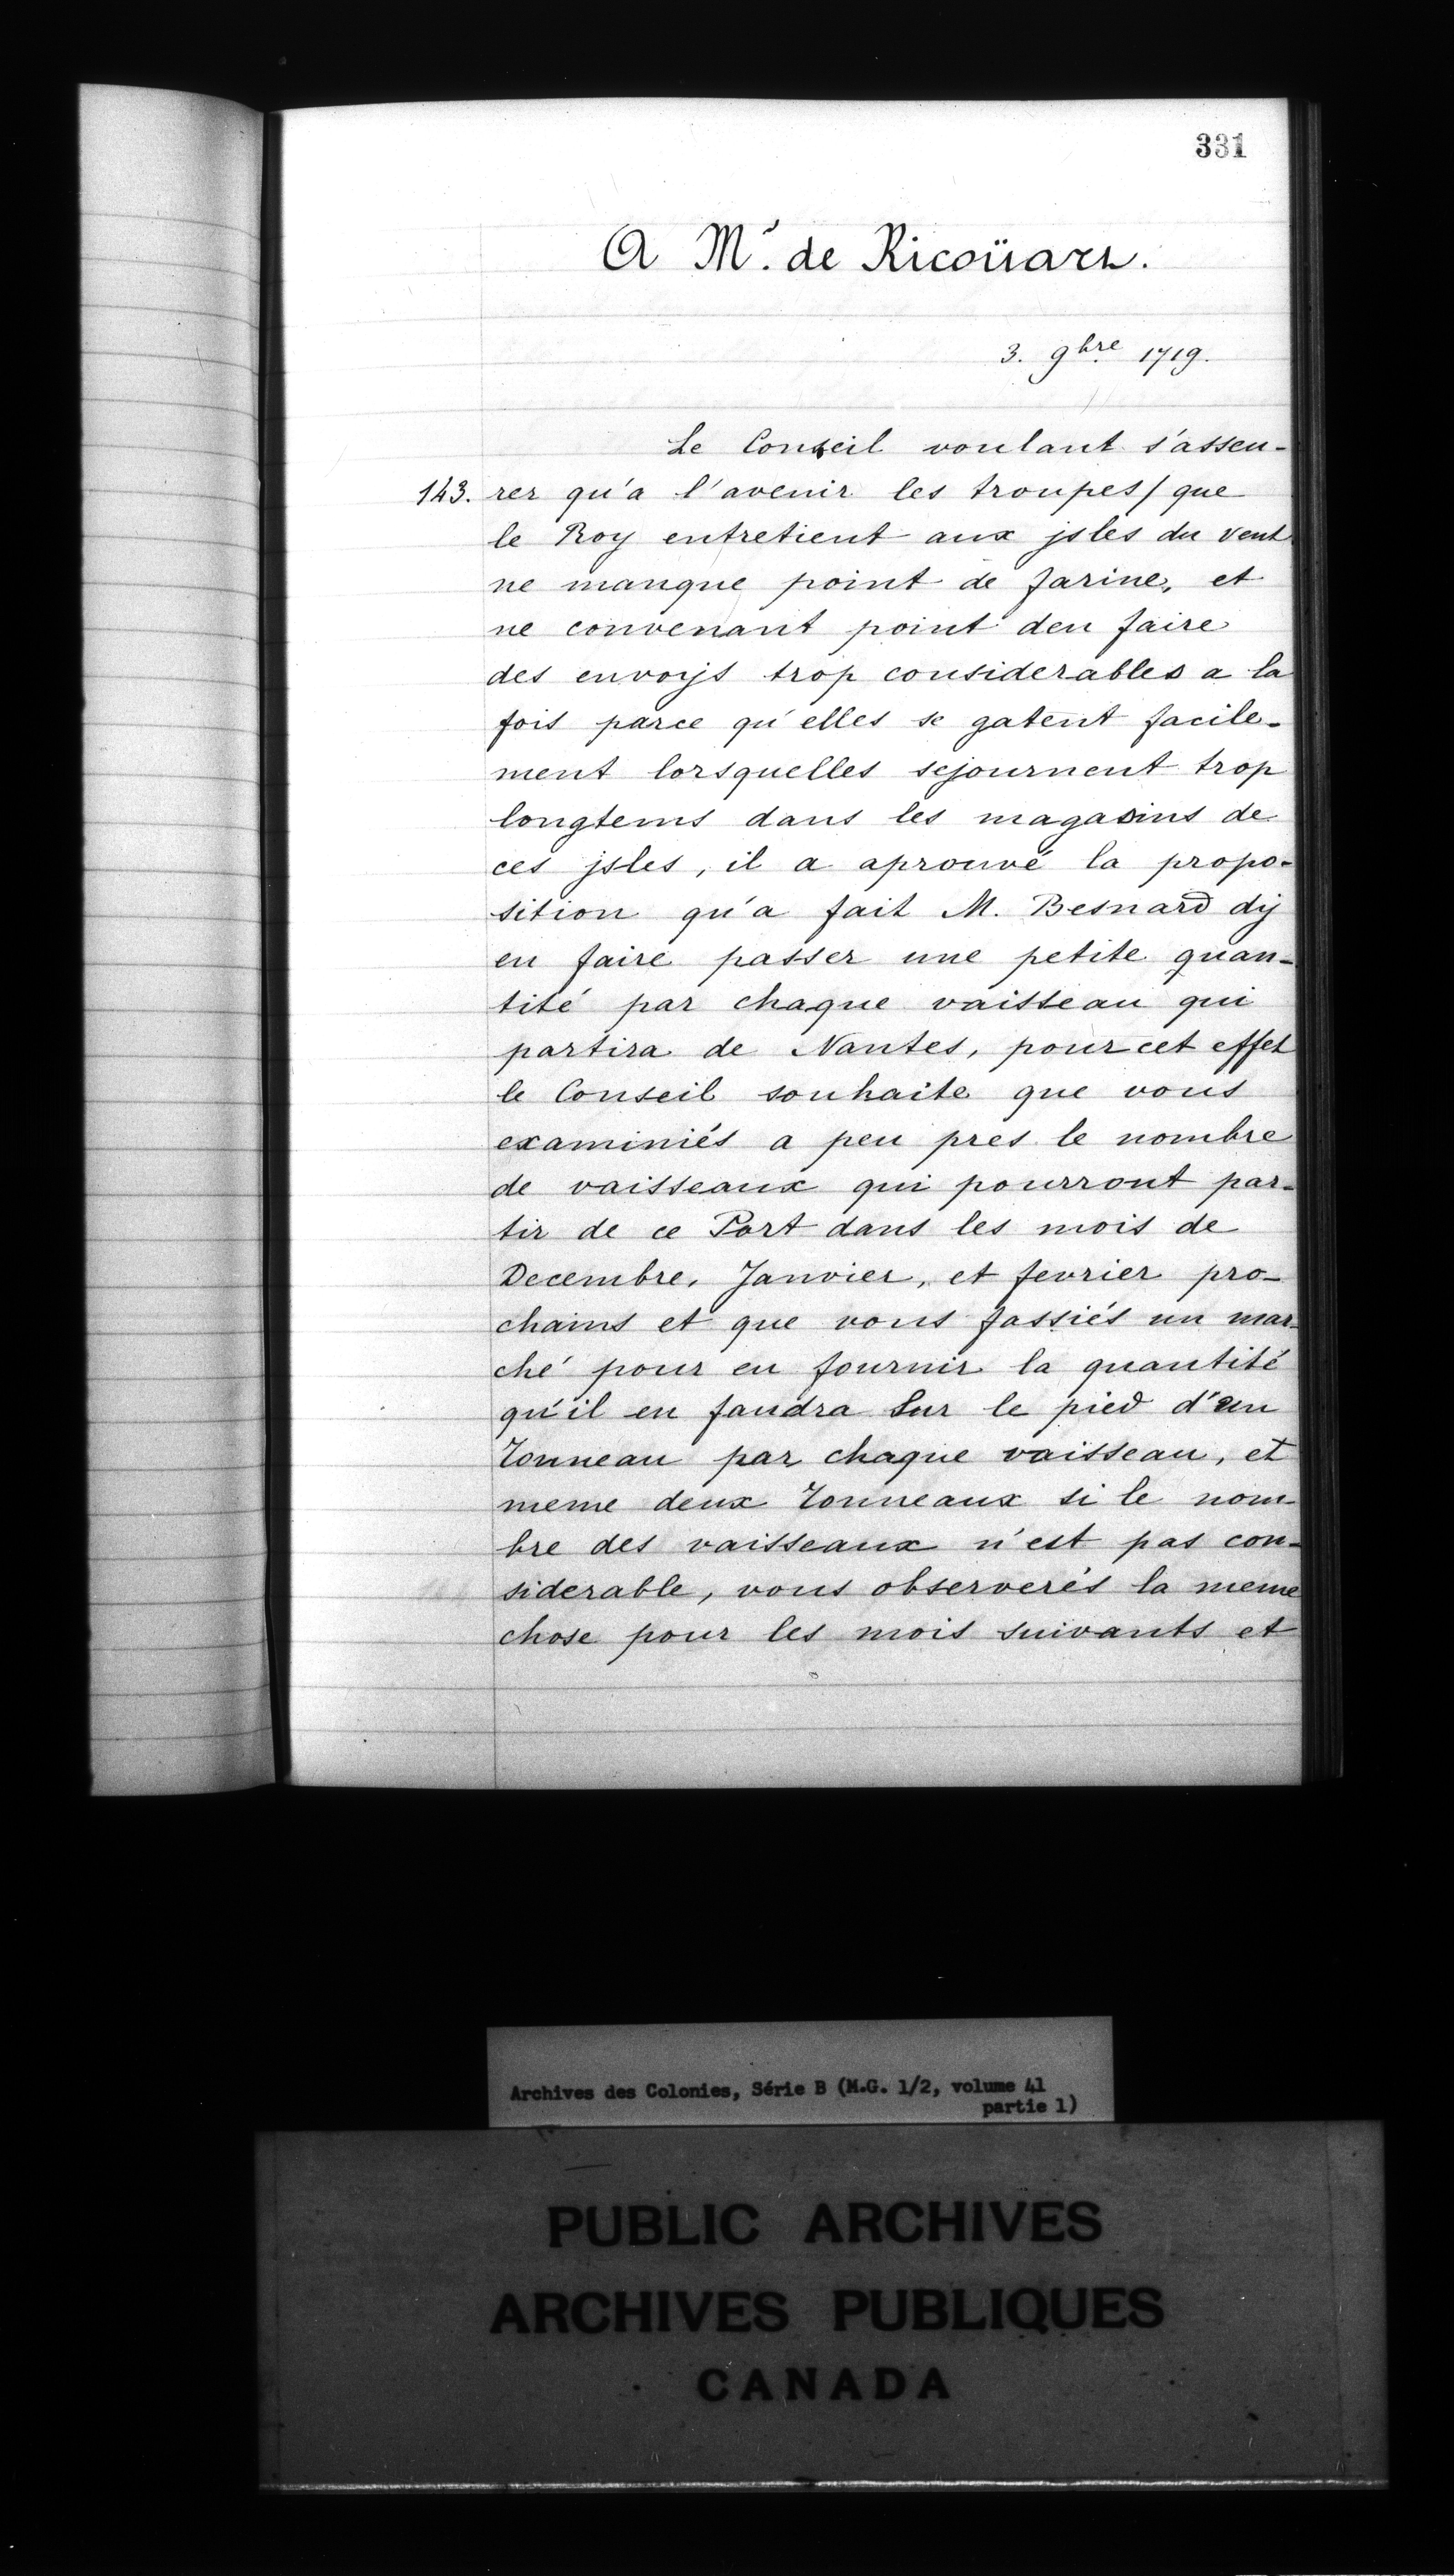 331
A Mr. de Ricoüart.
3. 9bre 1719.
Le Conseil voulant s'asseu-
143. rer qu'a l'avenir les troupes/ que
le Roy entretient aux jsles du vent
ne manque point de farine, et
ne convenant point den faire
des envoys trop considerables a la
fois parce qu'elles se gatent facile-
ment lorsquelles sejournent trop
longtems dans les magasins de
ces jsles, il a aprouvé la propo-
sition qu'a fait M. Besnard dÿ
en faire passer une petite quan-
tité par chaque vaisseau qui
partira de Nantes, pour cet effet
le Conseil souhaite que vous
examiniés a peu pres le nombre
de vaisseaux qui pourront par-
tir de ce Port dans les mois de
Decembre, Janvier, et fevrier pro-
chains et que vous fassiés un mar-
ché pour en fournir la quantité
qu'il en faudra Sur le pied d'un
Tonneau par chaque vaisseau, et
meme deux Tonneaux si le nom-
bre des vaisseaux n'est pas con-
siderable, vous observerés la meme
chose pour les mois suivants et
Archives des Colonies, Série B (M.G. 1/2, volume 41
partie 1)
PUBLIC ARCHIVES
ARCHIVES PUBLIQUES
CANADA